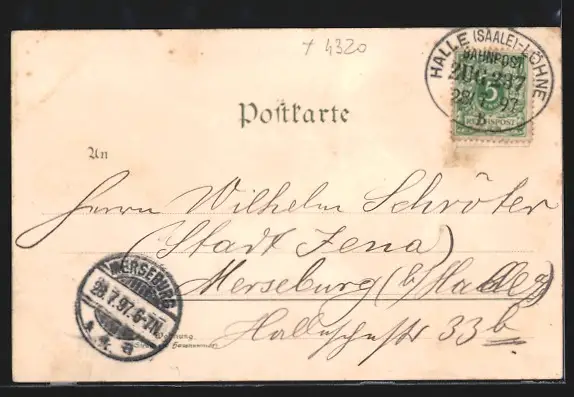 + 4320
HALLE (SAALE)-LÖHNE
BAHNPOST
ZUG 237
97
B
5
REICHSPOST
Postkarte
An
Herrn Wilhelm Schröter
(Stadt Jena)
Merseburg (b/Halle a/
Halleschestr 33b
MERSEBURG
28.7.97. 6-7N.
a
Wohnung